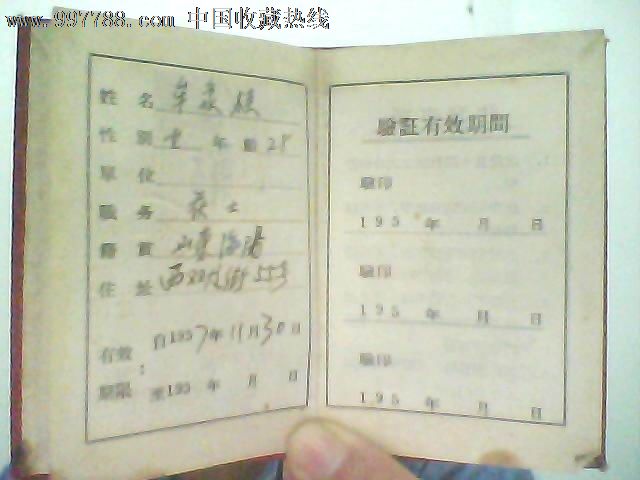 www.997788.com 中国收藏热线
姓名
性别 女 年龄 28
单位
职务 战士
籍贯 山东海阳
住址 55号
有效 自1957年11月30日
:
期限 至195 年 月 日
驗証有效期間
驗印
195 年 月 日
驗印
195 年 月 日
驗印
195 年 月 日